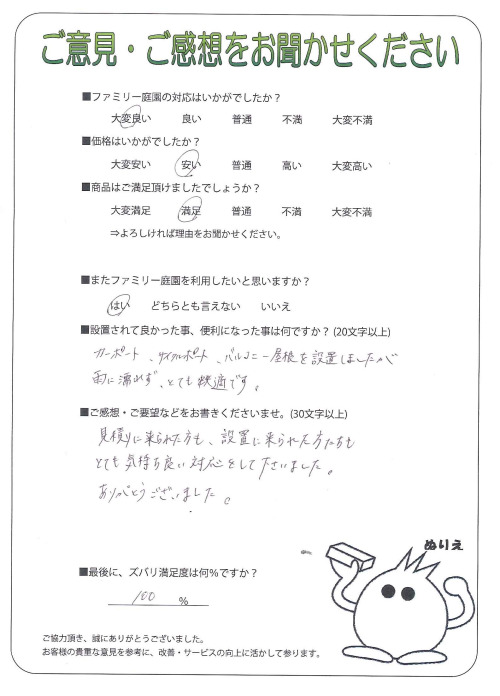 ご意見・ご感想をお聞かせください
■ファミリー庭園の対応はいかがでしたか？
大変良い 良い 普通 不満 大変不満
■価格はいかがでしたか？
大変安い 安い 普通 高い 大変高い
■商品はご満足頂けましたでしょうか？
大変満足 満足 普通 不満 大変不満
⇒よろしければ理由をお聞かせください。
■またファミリー庭園を利用したいと思いますか？
はい どちらとも言えない いいえ
■設置されて良かった事、便利になった事は何ですか？(20文字以上)
カーポート、サイクルポート、バルコニー屋根を設置しましたが
雨に濡れず、とても快適です。
■ご感想・ご要望などをお書きくださいませ。(30文字以上)
見積りに来られた方も、設置に来られた方たちも
とても気持ち良い対応をして下さいました。
ありがとうございました。
ぬりえ
■最後に、ズバリ満足度は何％ですか？
100 ％
ご協力頂き、誠にありがとうございました。
お客様の貴重な意見を参考に、改善・サービスの向上に活かして参ります。